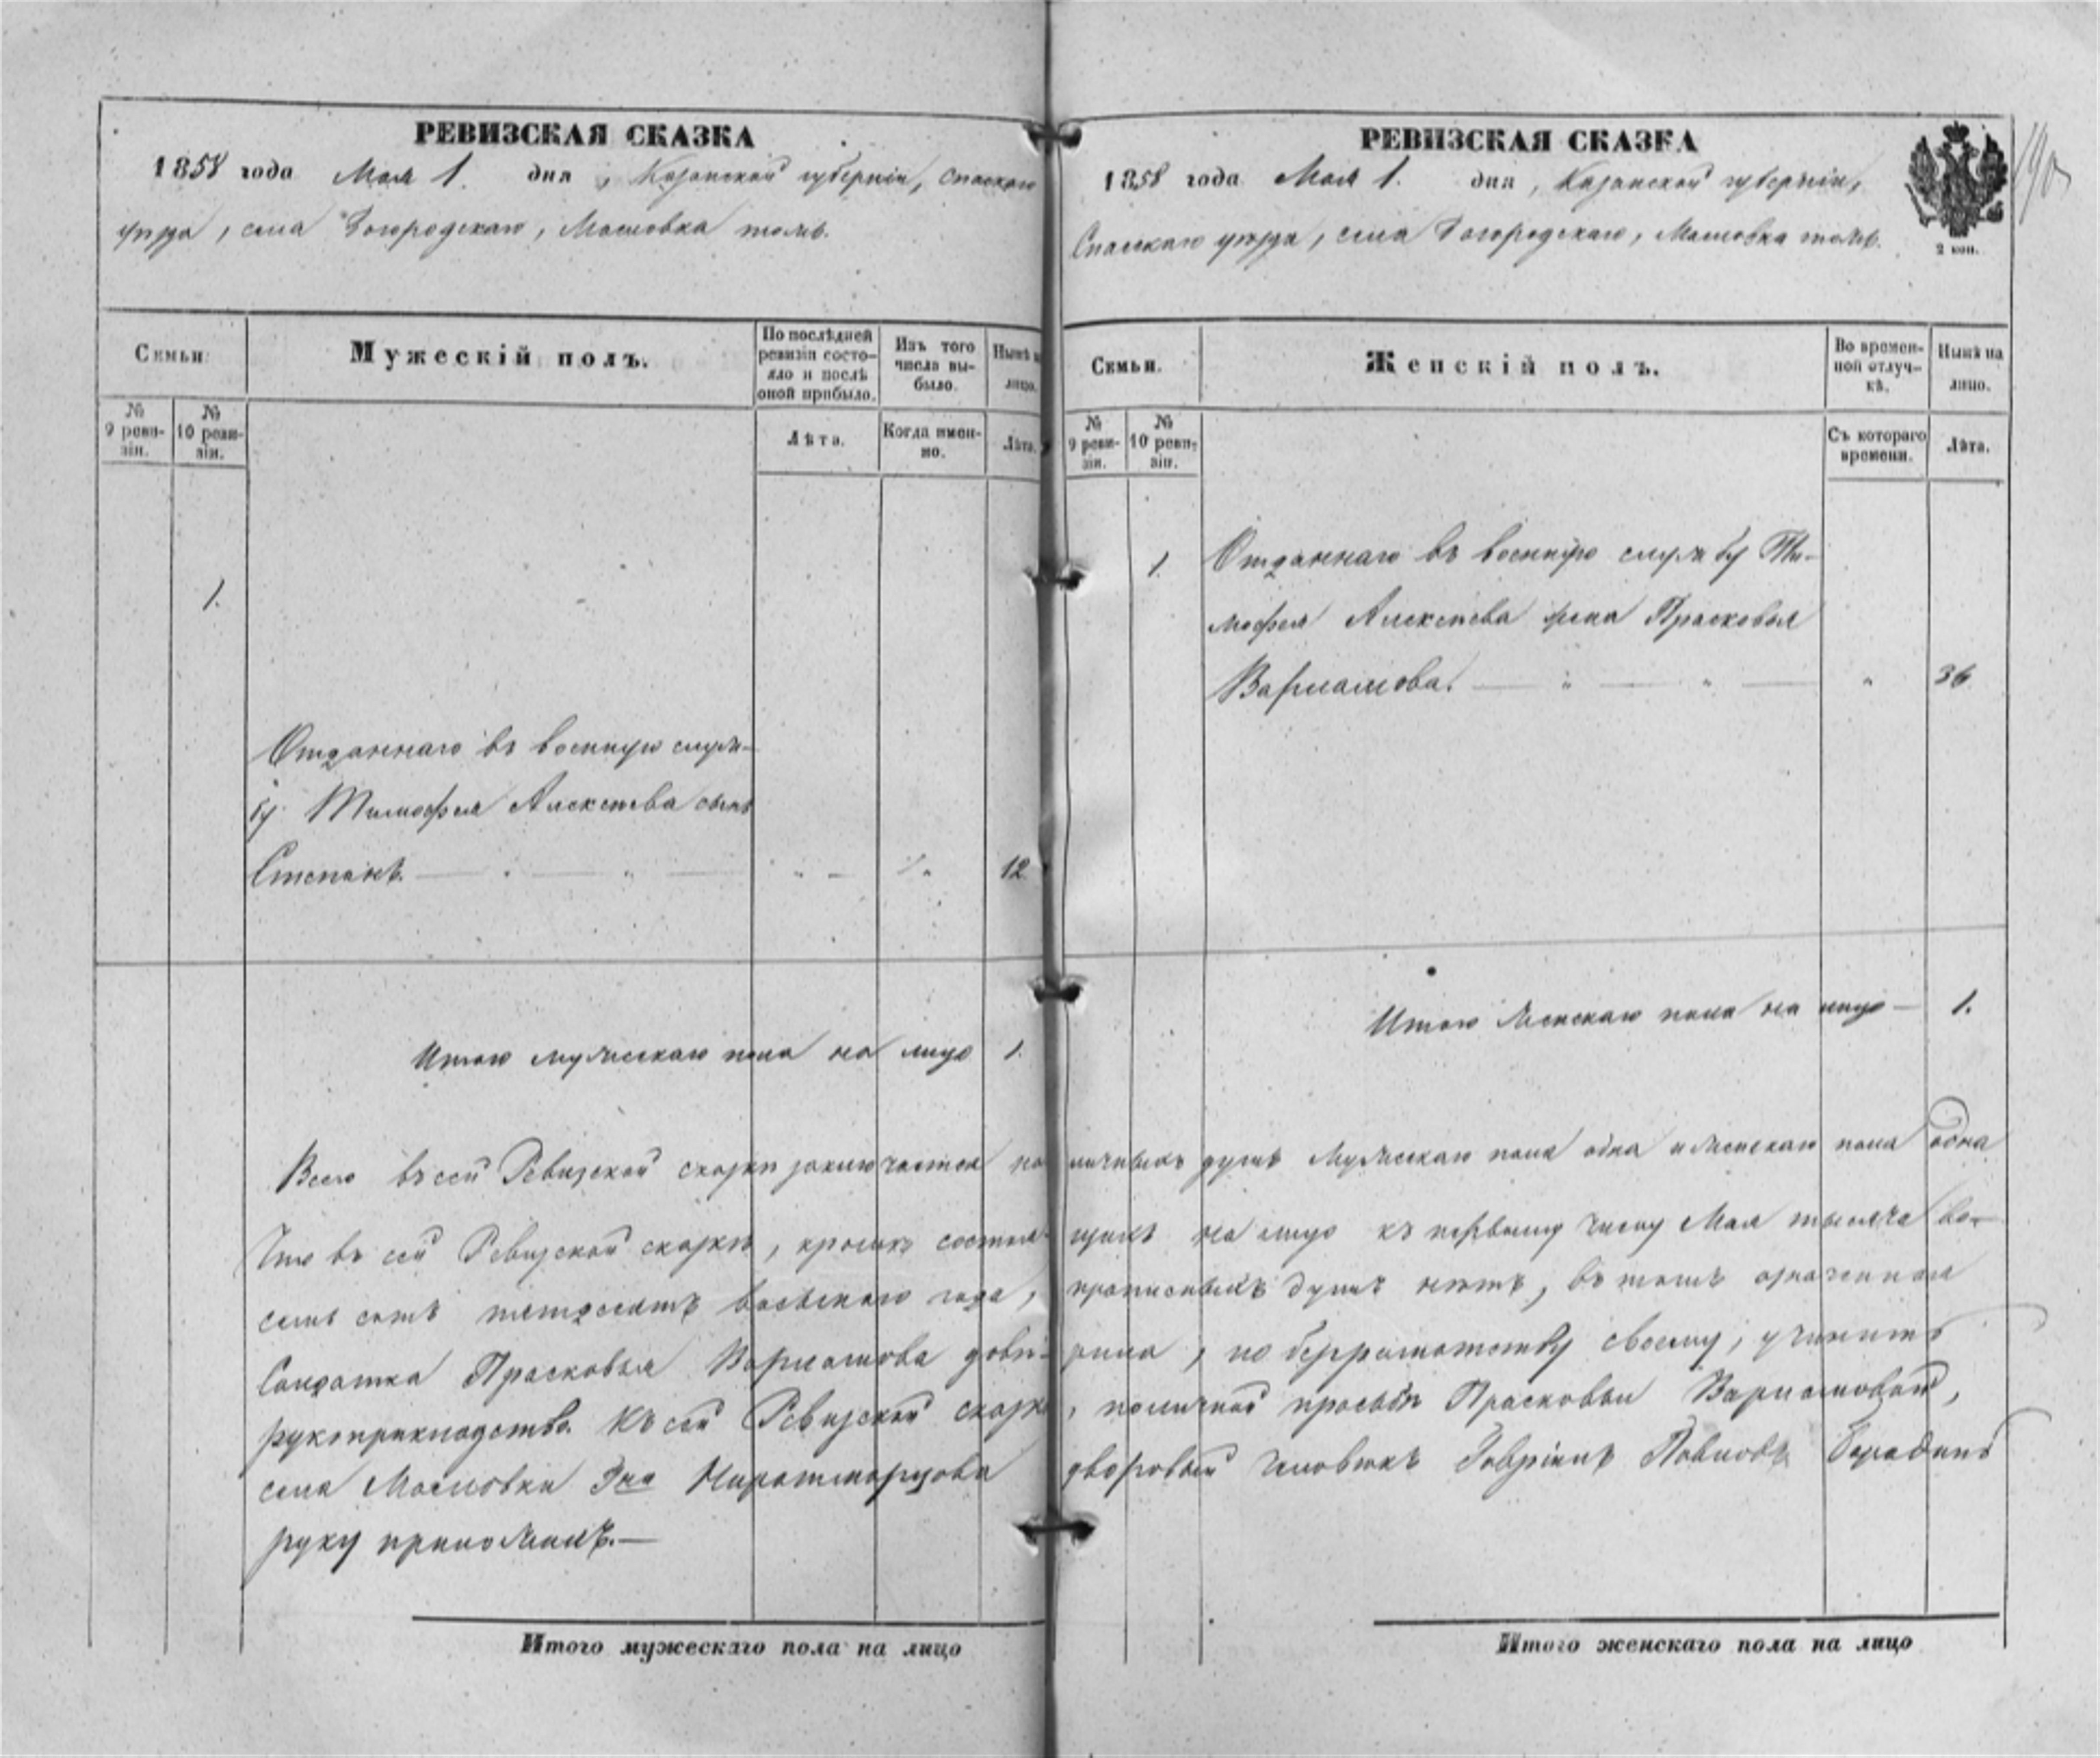 РЕВИЗСКАЯ СКАЗКА
1858 года Мая 1. дня, Казанской губернiи, Спаскаго
уѣзда, села Богородскаго, Масловка тожъ.
Семьи.
Мужескiй полъ.
По послѣдней ревизiи состояло и послѣ оной прибыло.
Изъ того числа выбыло.
Нынѣ на лицо.
№ 9 ревизiи.
№ 10 ревизiи.
Лѣта.
Когда именно.
Лѣта.
1.
Отданнаго въ военную служ-
бу Тимофея Алексѣева сынъ
Степанъ. 12
Итого мужескаго пола на лицо 1.
РЕВИЗСКАЯ СКАЗКА
1858 года Мая 1. дня, Казанской губернiи,
Спаскаго уѣзда, села Богородскаго, Масловка тожъ.
2 коп.
Семьи.
Женскiй полъ.
Во временной отлучкѣ.
Нынѣ на лицо.
№ 9 ревизiи.
№ 10 ревизiи.
Съ котораго времени.
Лѣта.
1. Отданнаго въ военную службу Ти-
мофея Алексѣева жена Прасковья
Варламова. 36
Итого женскаго пола на лицо — 1.
Всего въ сей Ревизской сказкѣ заключается наличныхъ душъ мужескаго пола одна и женскаго пола одна
Что въ сей Ревизской сказкѣ, кромѣ состоящихъ на лицо къ первому числу Мая тысяча во-
семь сотъ пятдесятъ восьмого года, прописныхъ душъ нѣтъ, въ томъ означенная
Солдатка Прасковья Варламова довѣрила, по безграмотству своему, учинить
рукоприкладство. Къ сей Ревизской сказкѣ, по личной просьбѣ Прасковьи Варламовой,
села Масловки дворовый человѣкъ Гаврiилъ Павловъ
руку приложилъ.—
Итого мужескаго пола на лицо
Итого женскаго пола на лицо